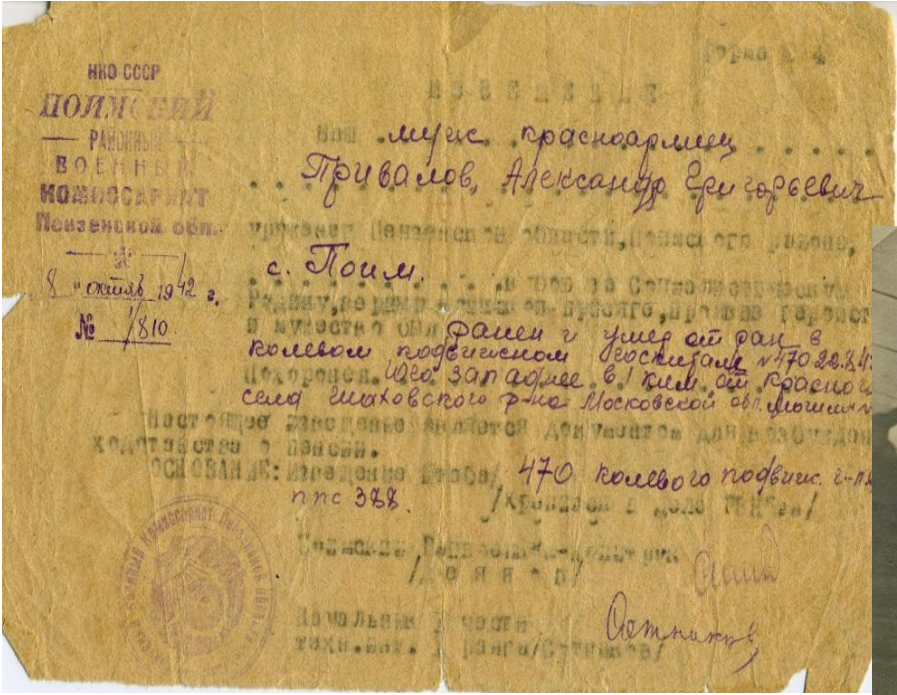 Форма № 4
НКО-СССР
ПОИМСКИЙ
РАЙОННЫЙ
ВОЕННЫЙ
КОМИССАРИАТ
Пензенской обл.
8 " октяб 1942 г.
№ 1/810.
ИЗВЕЩЕНИЕ
Ваш муж красноармеец
Привалов, Александр Григорьевич
уроженец Пензенской области, Поимского района,
с. Поим.
в бою за Социалистическую
Родину, верный воинской присяге, проявив геройст
и мужество был ранен и умер от ран в
колевом подвижном госпитале № 470 22.8.4
Похоронен. Юго западнее в 1 клм. от Красного
села Шаховского р-на Московской обл.
Настоящее извещение является документом для возбужден
ходатайства о пенсии.
ОСНОВАНИЕ: Извещение штаба/ 470 колевого подвиж. г-ля
ппс 388.
Начальник части
техн.инт. ранга/Сотников/
Сотников